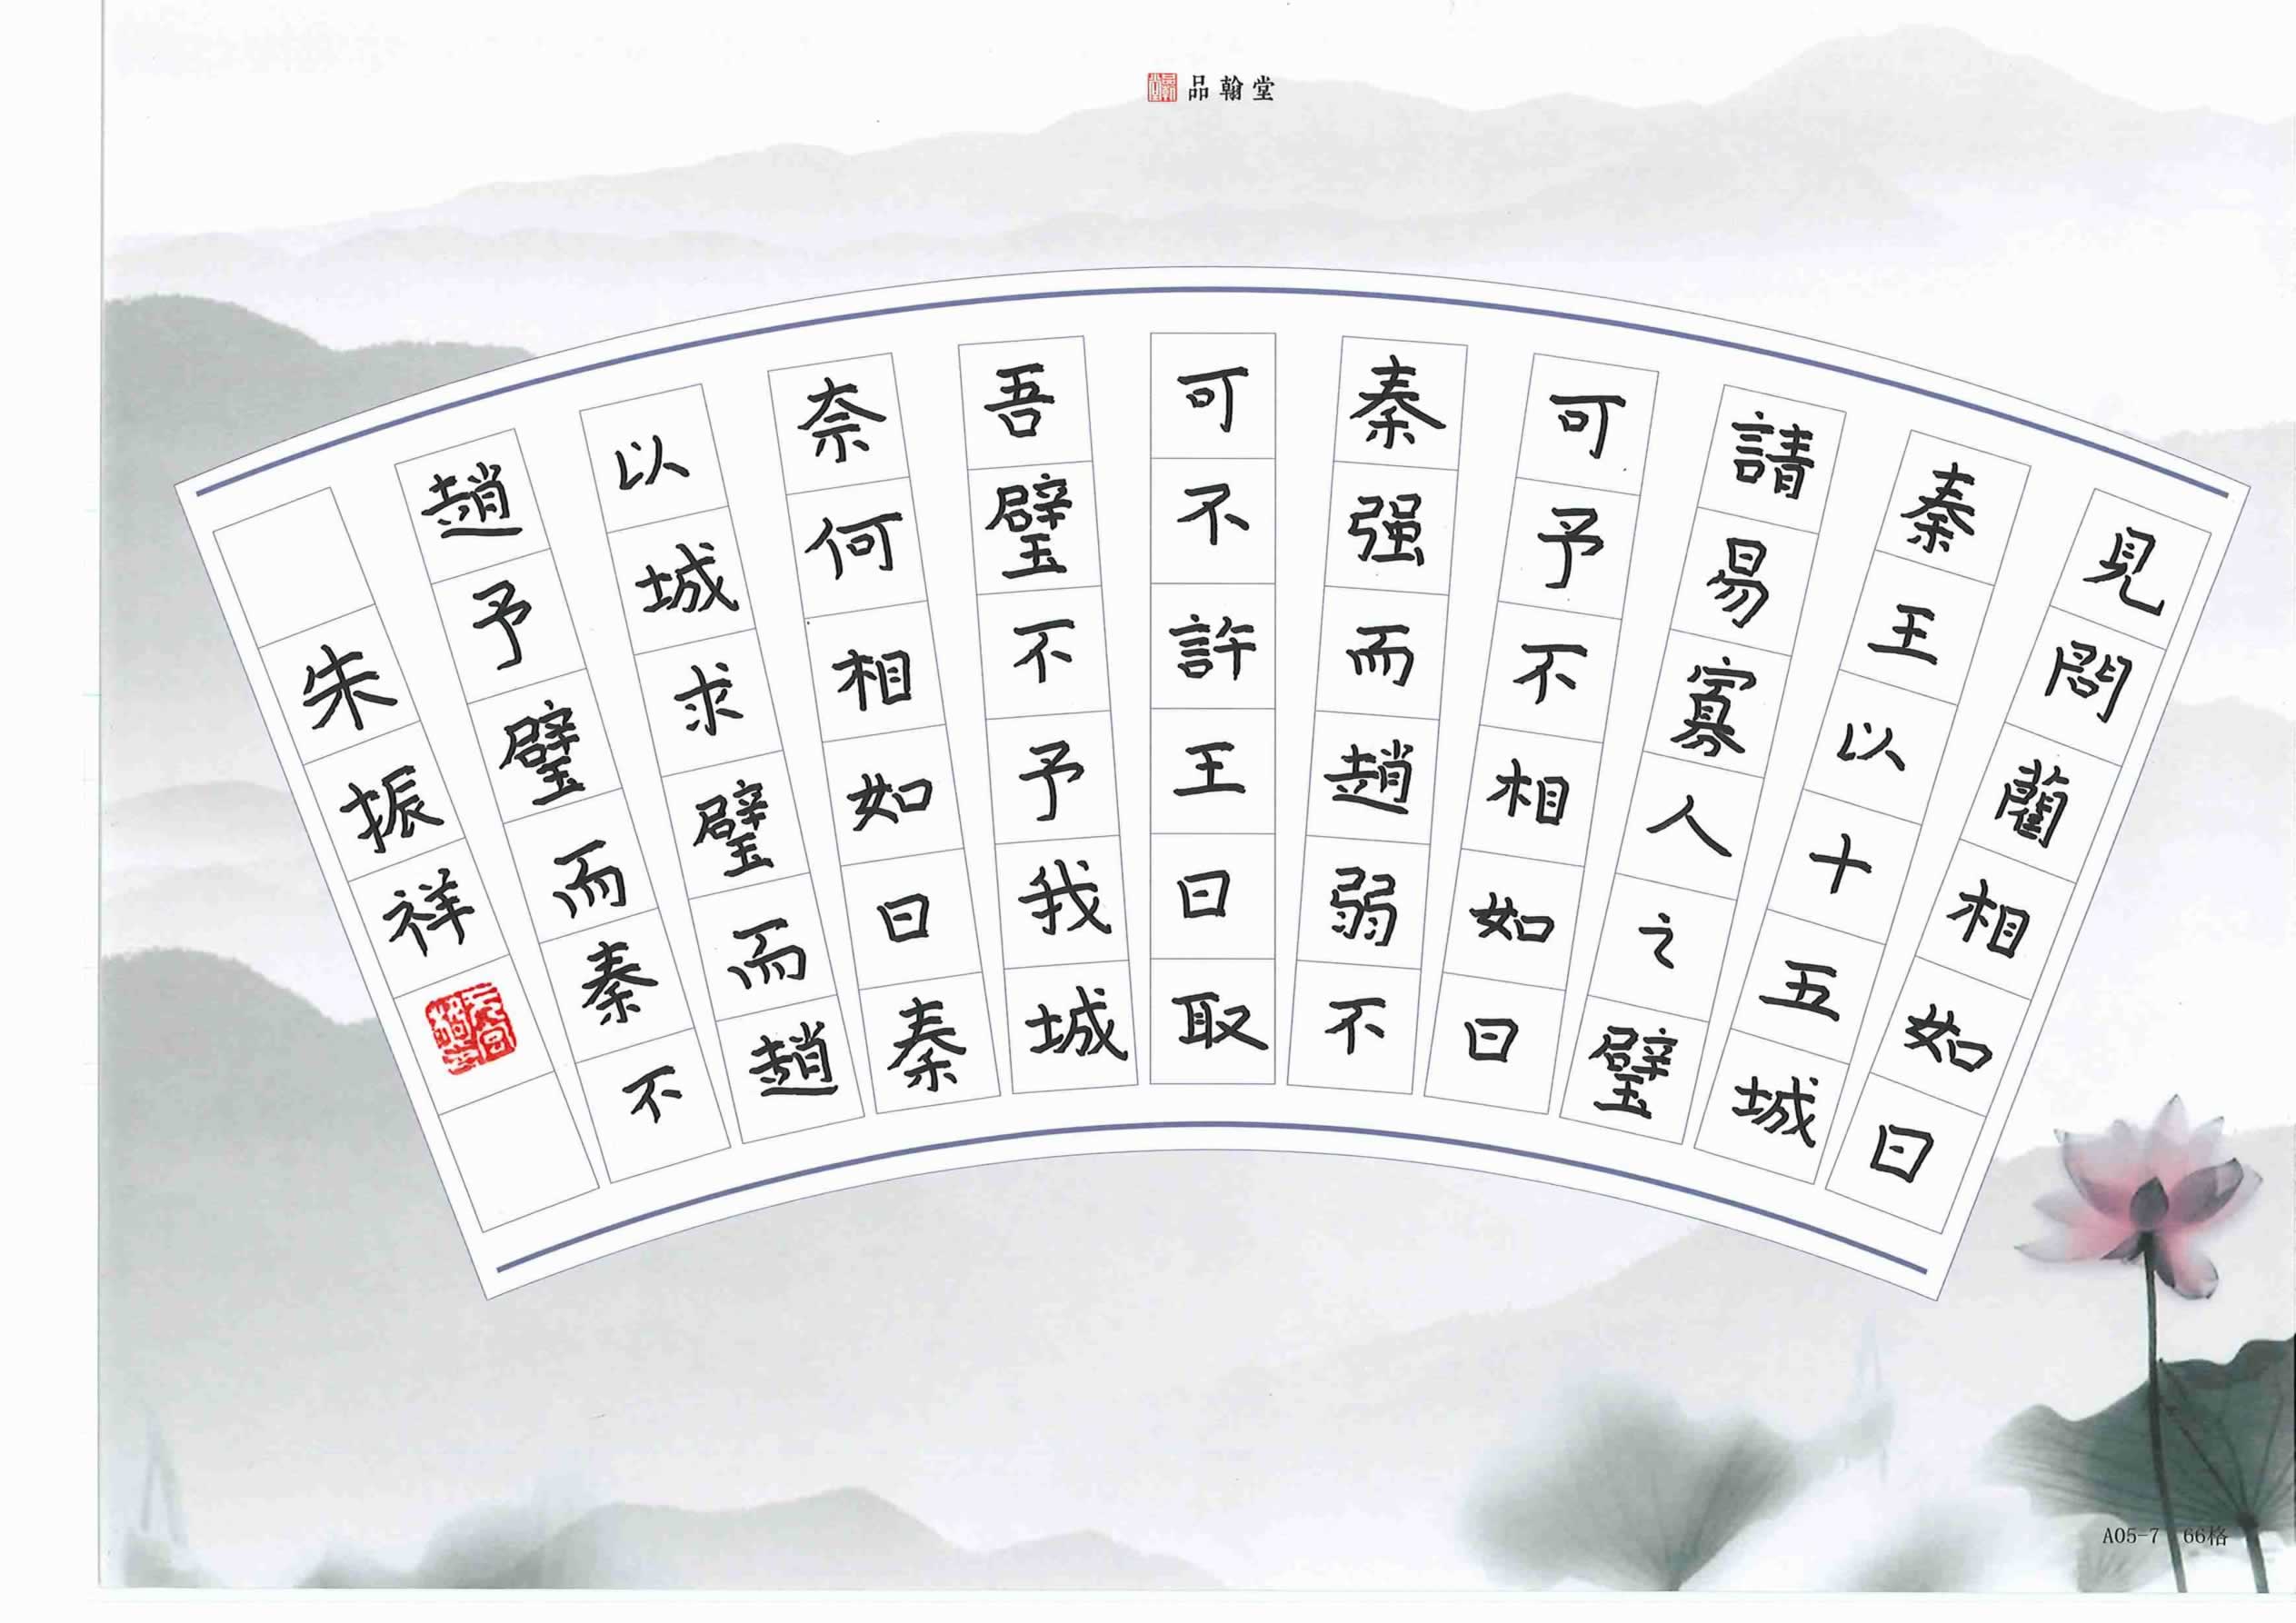 品翰堂
見問藺相如曰
秦王以十五城
請易寡人之璧
可予不相如曰
秦强而趙弱不
可不許王曰取
吾璧不予我城
奈何相如曰秦
以城求璧而趙
趙予璧而秦不
朱振祥
A05-7 66格